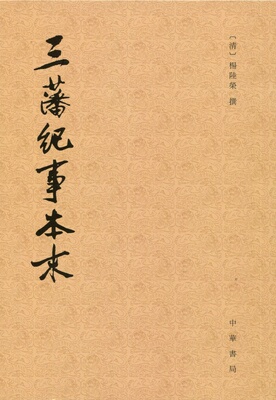 三藩紀事本末
〔清〕楊陸榮 撰
中華書局